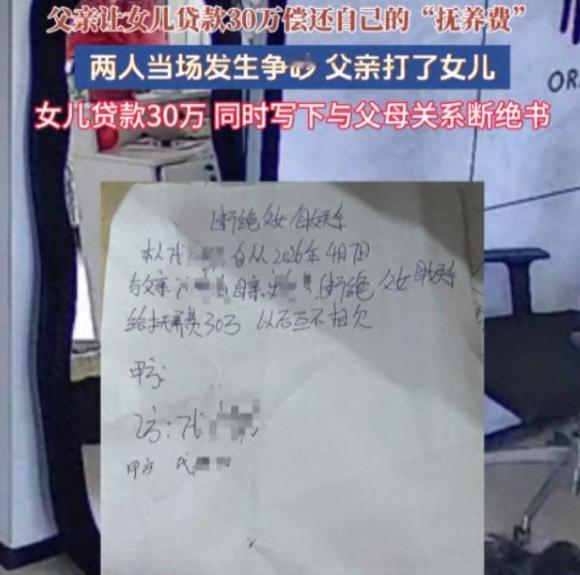 父亲让女儿贷款30万偿还自己的“抚养费”
两人当场发生争吵 父亲打了女儿
女儿贷款30万 同时写下与父母关系断绝书
OR
断绝父女母女关系
本人 自从2026年4月7日
与父亲 母亲 断绝父女母女关系
给抚养费30万 以后互不相欠
甲方:
乙方:
甲方